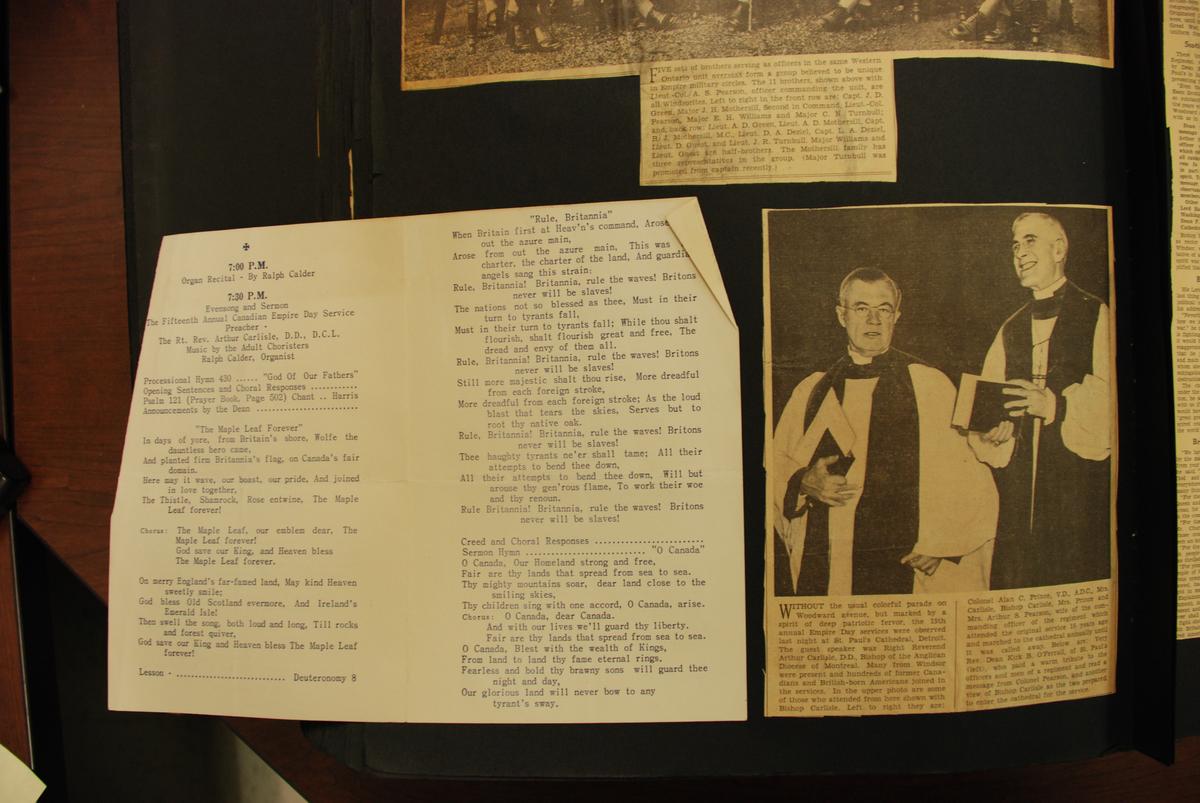 FIVE sets of brothers serving as officers in the same Western
Ontario unit overseas form a group believed to be unique
in Empire military circles. The 11 brothers, shown above with
Lieut.-Col. A. S. Pearson, officer commanding the unit, are
all Windsorites. Left to right in the front row are: Capt. J. D.
Green, Major J. H. Mothersill, Second in Command, Lieut.-Col.
Pearson, Major E. H. Williams and Major C. N. Turnbull;
and back row: Lieut. A. D. Green, Lieut. A. D. Mothersill, Capt.
R. J. Mothersill, M.C., Lieut. D. A. Deziel, Capt. L. A. Deziel,
Lieut. D. Guest and Lieut. J. R. Turnbull. Major Williams and
Lieut. Guest are half-brothers. The Mothersill family has
three representatives in the group. (Major Turnbull was
promoted from captain recently.)
7:00 P.M.
Organ Recital - By Ralph Calder
7:30 P.M.
Evensong and Sermon
The Fifteenth Annual Canadian Empire Day Service
Preacher -
The Rt. Rev. Arthur Carlisle, D.D., D.C.L.
Music by the Adult Choristers
Ralph Calder, Organist
Processional Hymn 430 ...... "God Of Our Fathers"
Opening Sentences and Choral Responses ............
Psalm 121 (Prayer Book, Page 502) Chant .. Harris
Announcements by the Dean ..........................
"The Maple Leaf Forever"
In days of yore, from Britain's shore, Wolfe the
dauntless hero came,
And planted firm Britannia's flag, on Canada's fair
domain.
Here may it wave, our boast, our pride, And joined
in love together,
The Thistle, Shamrock, Rose entwine, The Maple
Leaf forever!
Chorus: The Maple Leaf, our emblem dear, The
Maple Leaf forever!
God save our King, and Heaven bless
The Maple Leaf forever.
On merry England's far-famed land, May kind Heaven
sweetly smile;
God bless Old Scotland evermore, And Ireland's
Emerald Isle!
Then swell the song, both loud and long, Till rocks
and forest quiver,
God save our King and Heaven bless The Maple Leaf
forever!
Lesson - ............................ Deuteronomy 8
"Rule, Britannia"
When Britain first at Heav'n's command, Arose
out the azure main,
Arose from out the azure main, This was
charter, the charter of the land, And guardian
angels sang this strain:
Rule, Britannia! Britannia, rule the waves! Britons
never will be slaves!
The nations not so blessed as thee, Must in their
turn to tyrants fall,
Must in their turn to tyrants fall; While thou shalt
flourish, shalt flourish great and free, The
dread and envy of them all.
Rule, Britannia! Britannia, rule the waves! Britons
never will be slaves!
Still more majestic shalt thou rise, More dreadful
from each foreign stroke,
More dreadful from each foreign stroke; As the loud
blast that tears the skies, Serves but to
root thy native oak.
Rule, Britannia! Britannia, rule the waves! Britons
never will be slaves!
Thee haughty tyrants ne'er shall tame; All their
attempts to bend thee down,
All their attempts to bend thee down, Will but
arouse thy gen'rous flame, To work their woe
and thy renoun.
Rule Britannia! Britannia, rule the waves! Britons
never will be slaves!
Creed and Choral Responses .......................
Sermon Hymn ......................... "O Canada"
O Canada, Our Homeland strong and free,
Fair are thy lands that spread from sea to sea.
Thy mighty mountains soar, dear land close to the
smiling skies,
Thy children sing with one accord, O Canada, arise.
Chorus: O Canada, dear Canada.
And with our lives we'll guard thy liberty.
Fair are thy lands that spread from sea to sea.
O Canada, Blest with the wealth of Kings,
From land to land thy fame eternal rings.
Fearless and bold thy brawny sons will guard thee
night and day,
Our glorious land will never bow to any
tyrant's sway.
WITHOUT the usual colorful parade on
Woodward avenue, but marked by a
spirit of deep patriotic fervor, the 15th
annual Empire Day services were observed
last night at St. Paul's Cathedral, Detroit.
The guest speaker was Right Reverend
Arthur Carlisle, D.D., Bishop of the Anglican
Diocese of Montreal. Many from Windsor
were present and hundreds of former Cana-
dians and British-born Americans joined in
the services. In the upper photo are some
of those who attended from here shown with
Bishop Carlisle. Left to right they are:
Colonel Alan C. Prince, V.D., A.D.C., Mrs.
Carlisle, Bishop Carlisle, Mrs. Prince and
Mrs. Arthur S. Pearson, wife of the com-
manding officer of the regiment which
attended the original service 15 years ago
and marched to the cathedral annually until
it was called away. Below are: Very
Rev. Dean Kirk B. O'Ferrall, of St. Paul's
(left), who paid a warm tribute to the
officers and men of a regiment and read a
message from Colonel Pearson, and another
view of Bishop Carlisle as the two prepared
to enter the cathedral for the service.